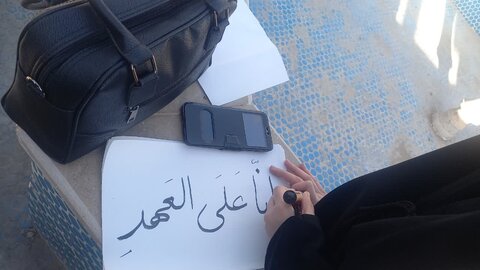 عَلَى العَهدِ